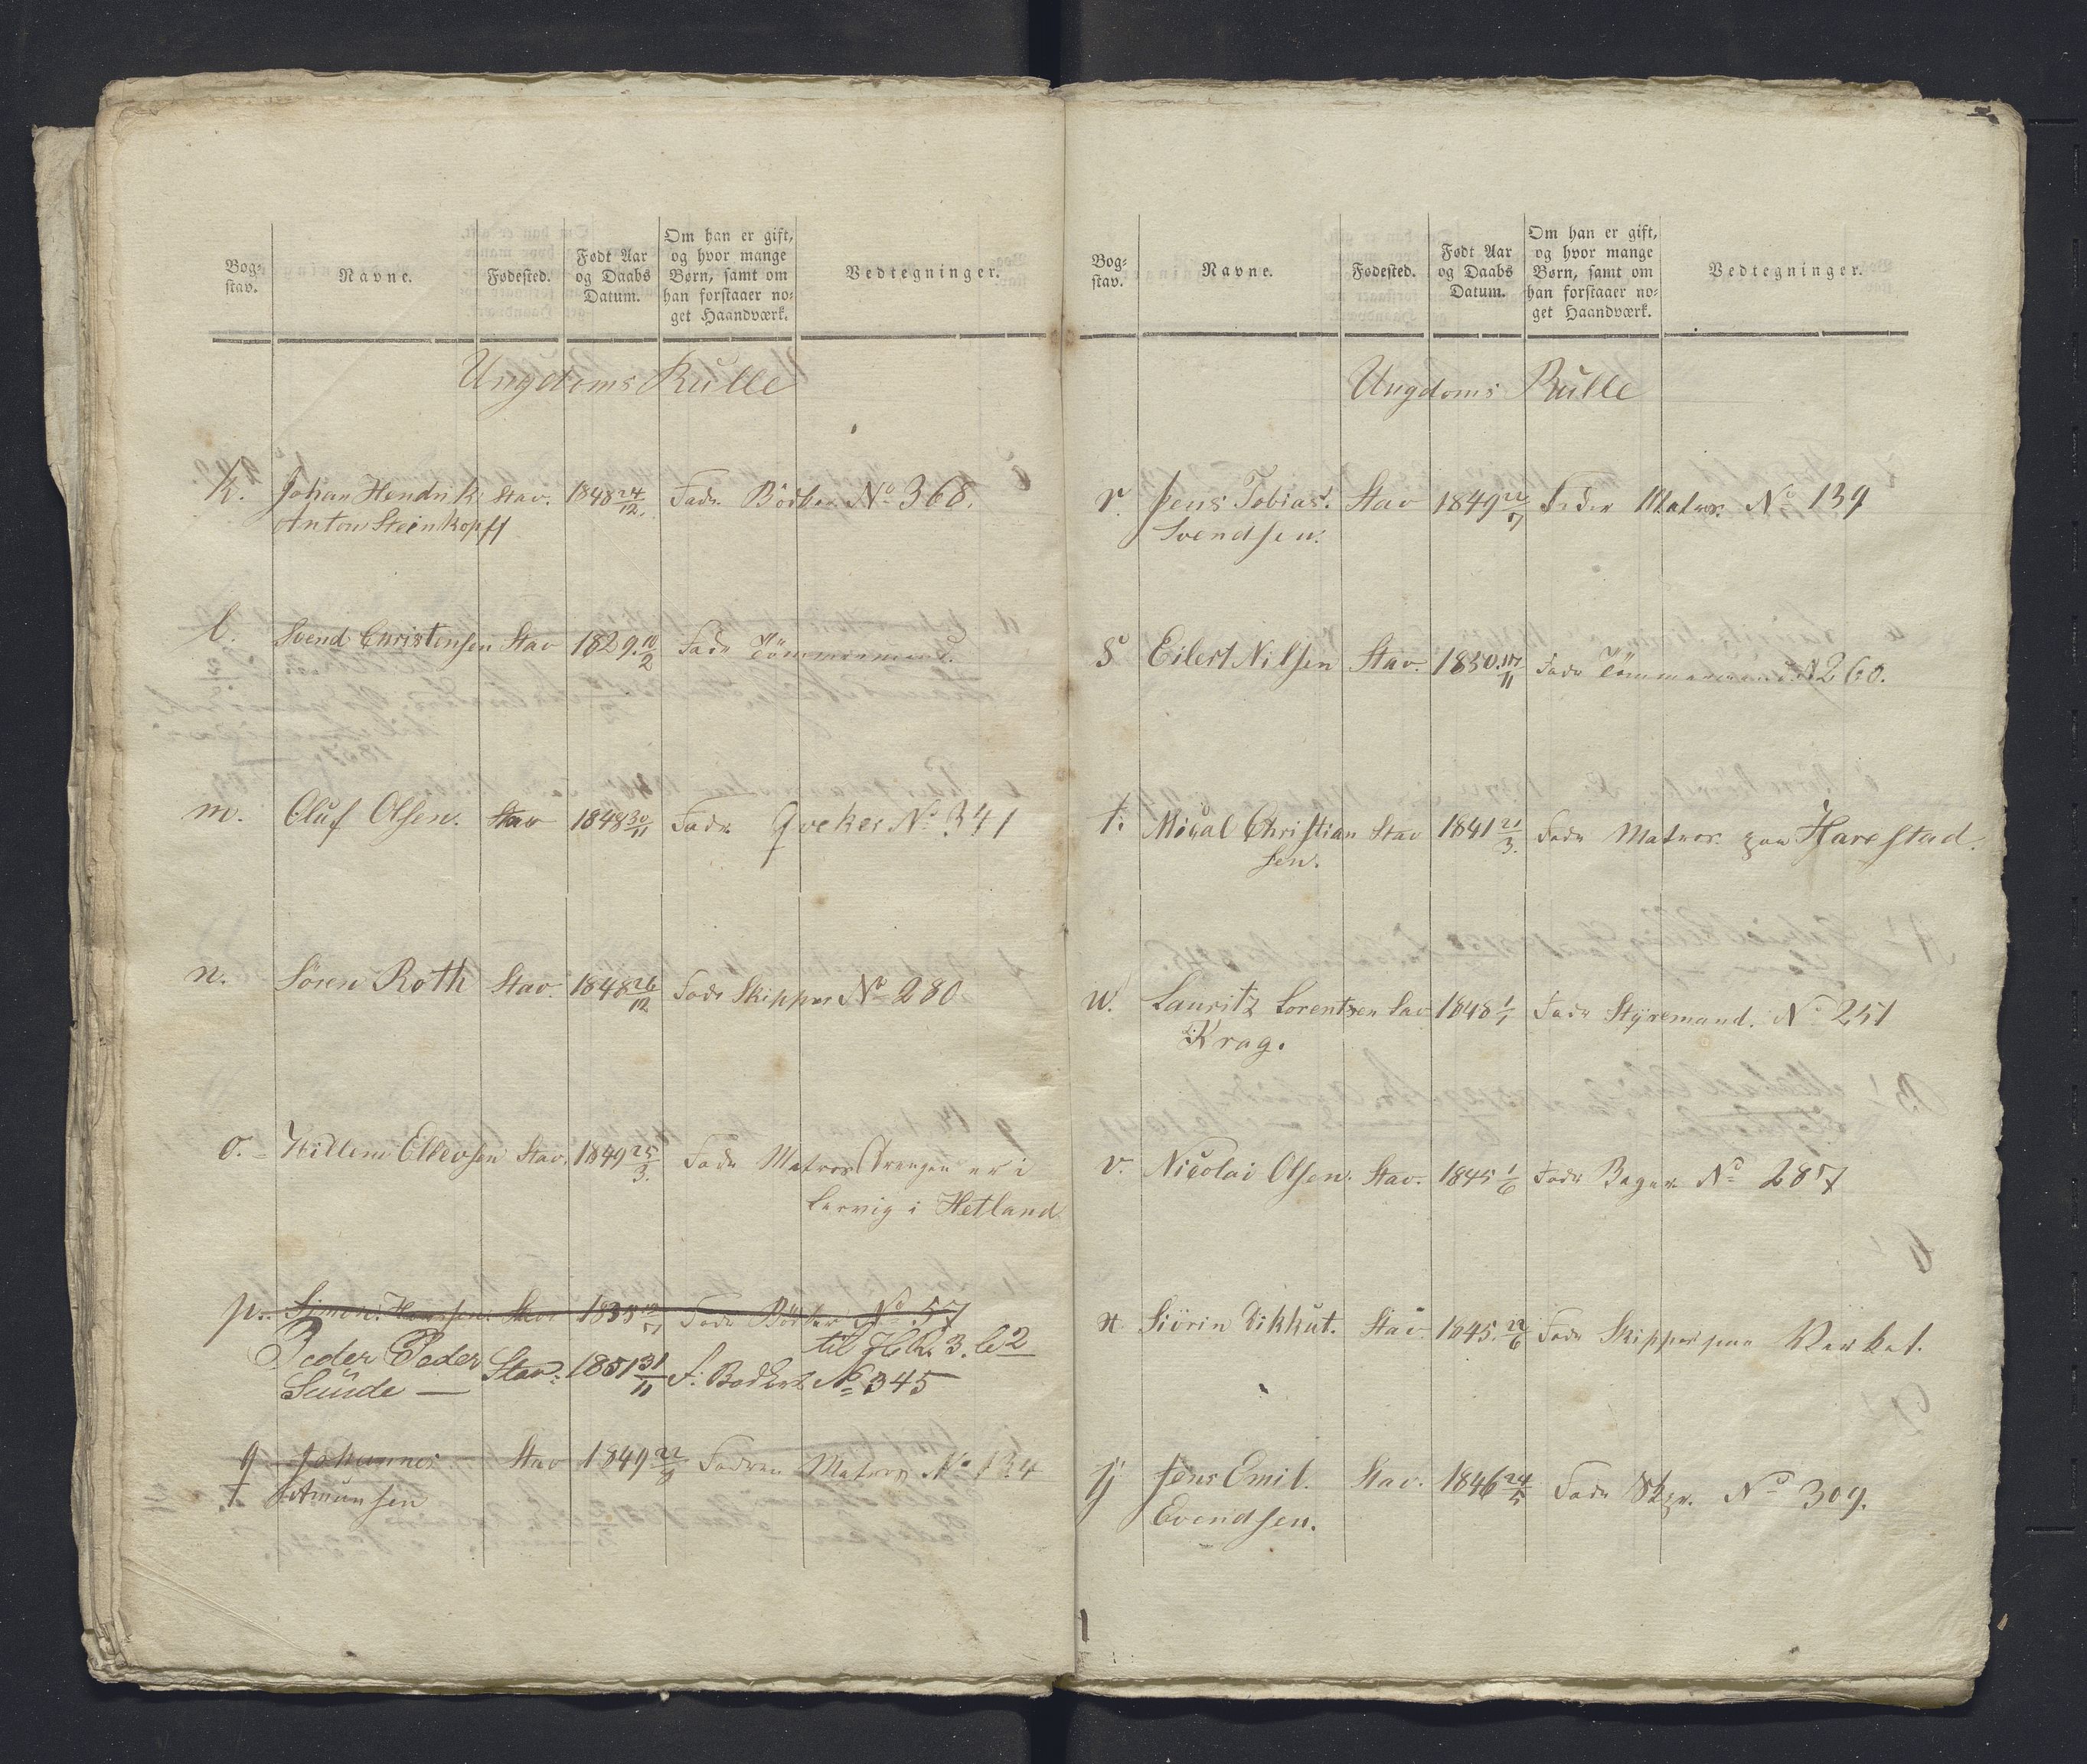 Bog-
stav.
Navne.
Fødested.
Født Aar
og Daabs
Datum.
Om han er gift,
og hvor mange
Børn, samt om
han forstaaer no-
get Haandværk.
Vedtegninger.
Ungdoms Rulle
k. Johan Hendrik Stav. 1848 24/12. Fadr. Bödker No 368.
Anton Steinkopff
l. Svend Christensen Stav 1829. 10/2 Fadr Tömmermand.
m. Oluf Olsen. Stav 1848 30/11 Fadr. Qveker No 341
n. Sören Roth Stav. 1848 26/12 Fadr Skipper No 280
o. Willem Ellevsen Stav. 1849 25/3. Fadr Matros Drengen er i
Lervig i Hetland
p. Simon Hansen Stav 1835 Fadr Bödker No 57
til H.R. 3. b 2
Peder Peder Stav: 1851 31/11 F. Bødker No 345
Sunde —
q Johannes Stav 1849 Fadren Matros No 134
Amunsen
Bog-
stav.
Navne.
Fødested.
Født Aar
og Daabs
Datum.
Om han er gift,
og hvor mange
Børn, samt om
han forstaaer no-
get Haandværk.
Vedtegninger.
Ungdoms Rulle
r. Jens Tobias Stav 1849 Fader Matros. No 139
Svendsen.
s Eilert Nilsen Stav. 1830. 17/11 Fadr Tömmermand No 260.
t. Michal Christian Stav 1841 21/3. Fadr Matros. paa Harestad.
sen.
u. Lauritz Lorentsen Sav 1848 1/1 Fadr Styremand. No 251
Krag.
v. Nicolai Olsen. Stav. 1845 1/6 Fadr Bager No 287
x Siörin Stav. 1845. 22/6 Fadr Skipper paa
ÿ Jens Emil. Stav. 1846 24/5 Fadr Skpr. No 309.
Evendsen.